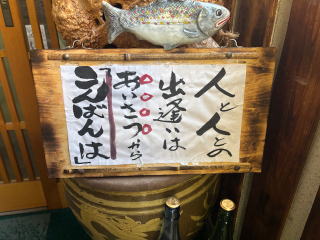 人と人との
出逢いは
あいさつから
「えばんは」